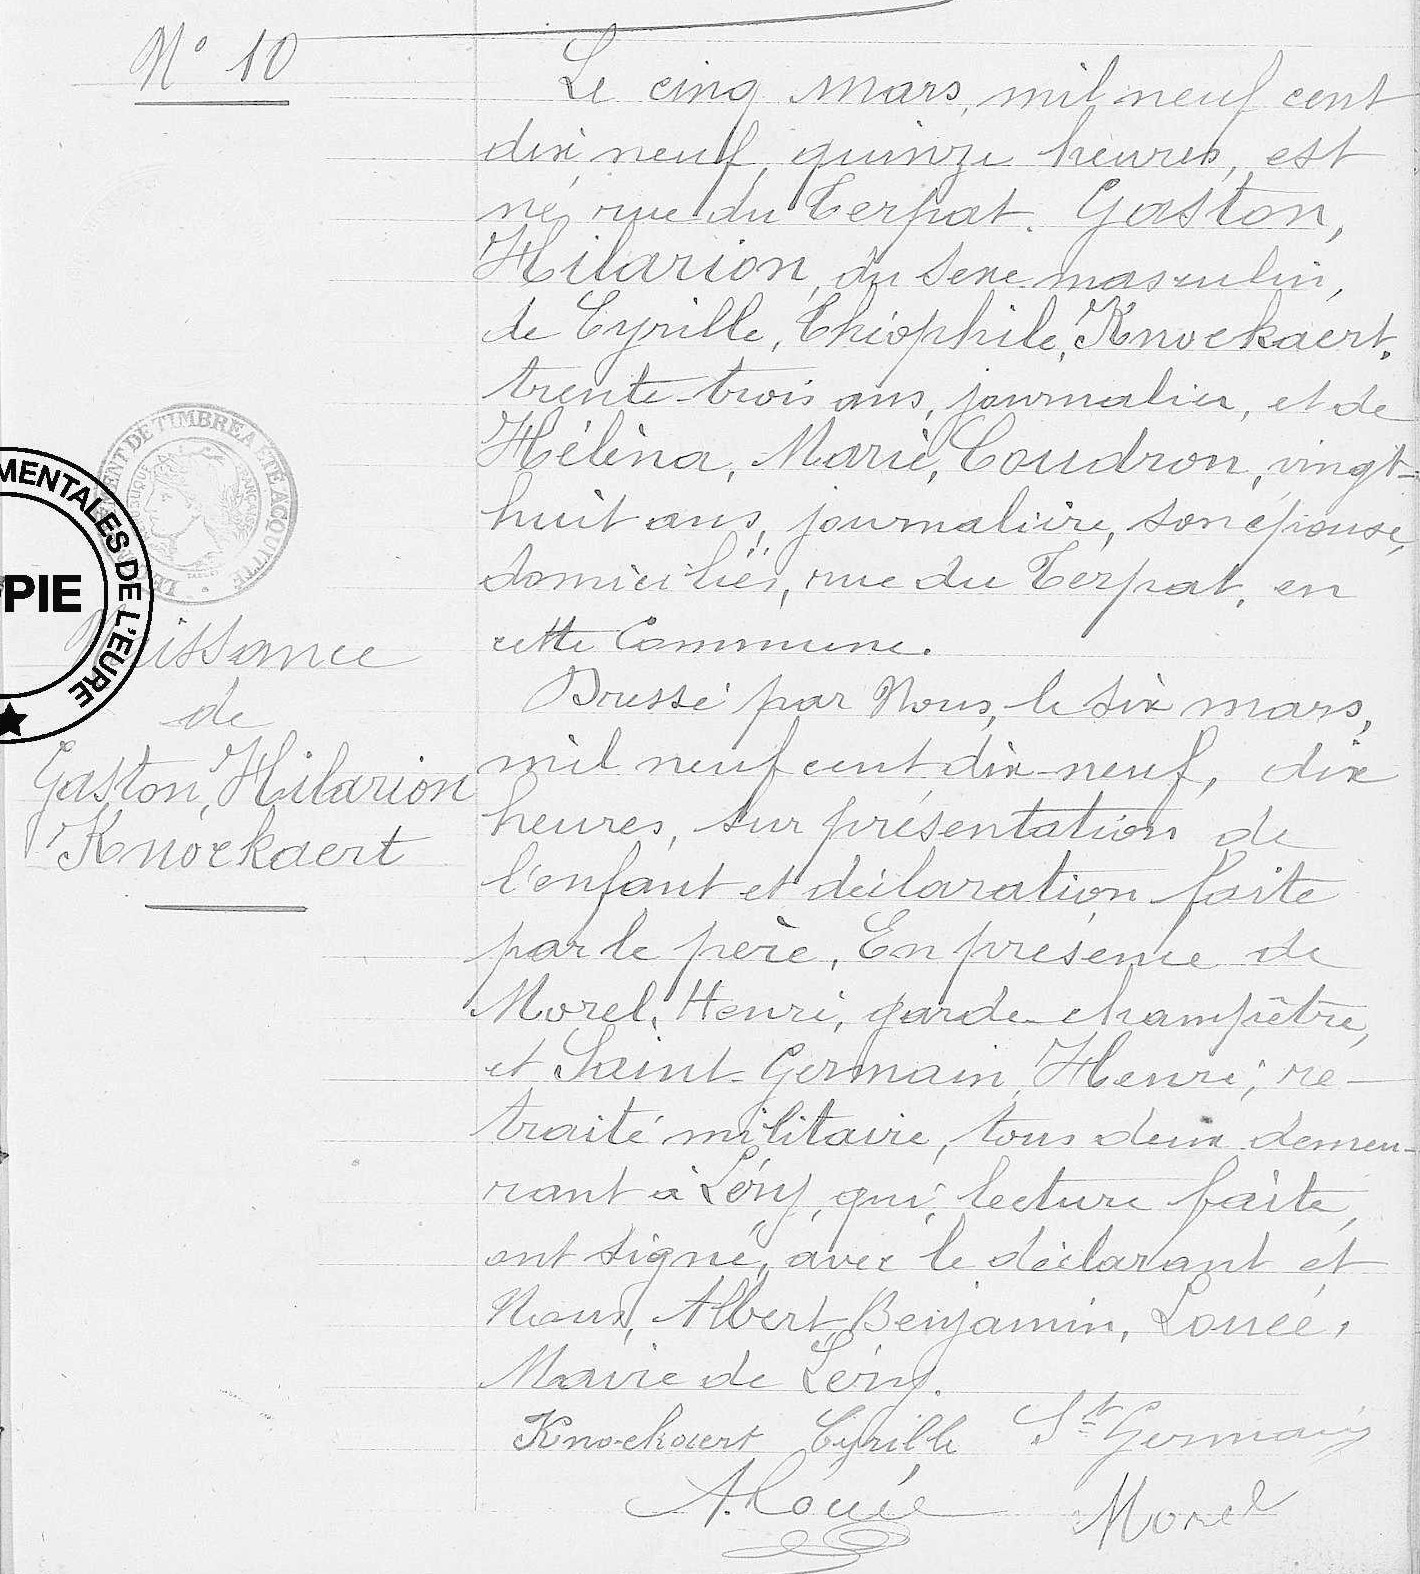 N° 10
Le cinq mars, mil neuf cent
dix neuf, quinze heures, est
né, rue du Terpat. Gaston,
Hilarion, du sexe masculin,
de Cyrille, Théophile, Knockaert,
trente-trois ans, journalier, et de
Hélèna, Marie, Coudron, vingt-
huit ans, journalière, son épouse,
domiciliés, rue du Terpat, en
cette Commune.
Dressé par Nous, le six mars,
mil neuf cent dix-neuf, dix
heures, sur présentation de
l'enfant et déclaration faite
par le père, En présence de
Morel, Henri, garde-champêtre,
et Saint-Germain, Henri, re-
traité militaire, tous deux demeu-
rant à Léry, qui, lecture faite,
ont signé, avec le déclarant et
Nous, Albert, Benjamin, Louée,
Maire de Léry.
Knockaert Cyrille St Germain
A. Louée Morel
LE TIMBRE A ÉTÉ ACQUITTÉ
MENTALES DE L'EURE
PIE
issance
de
Gaston, Hilarion
Knockaert